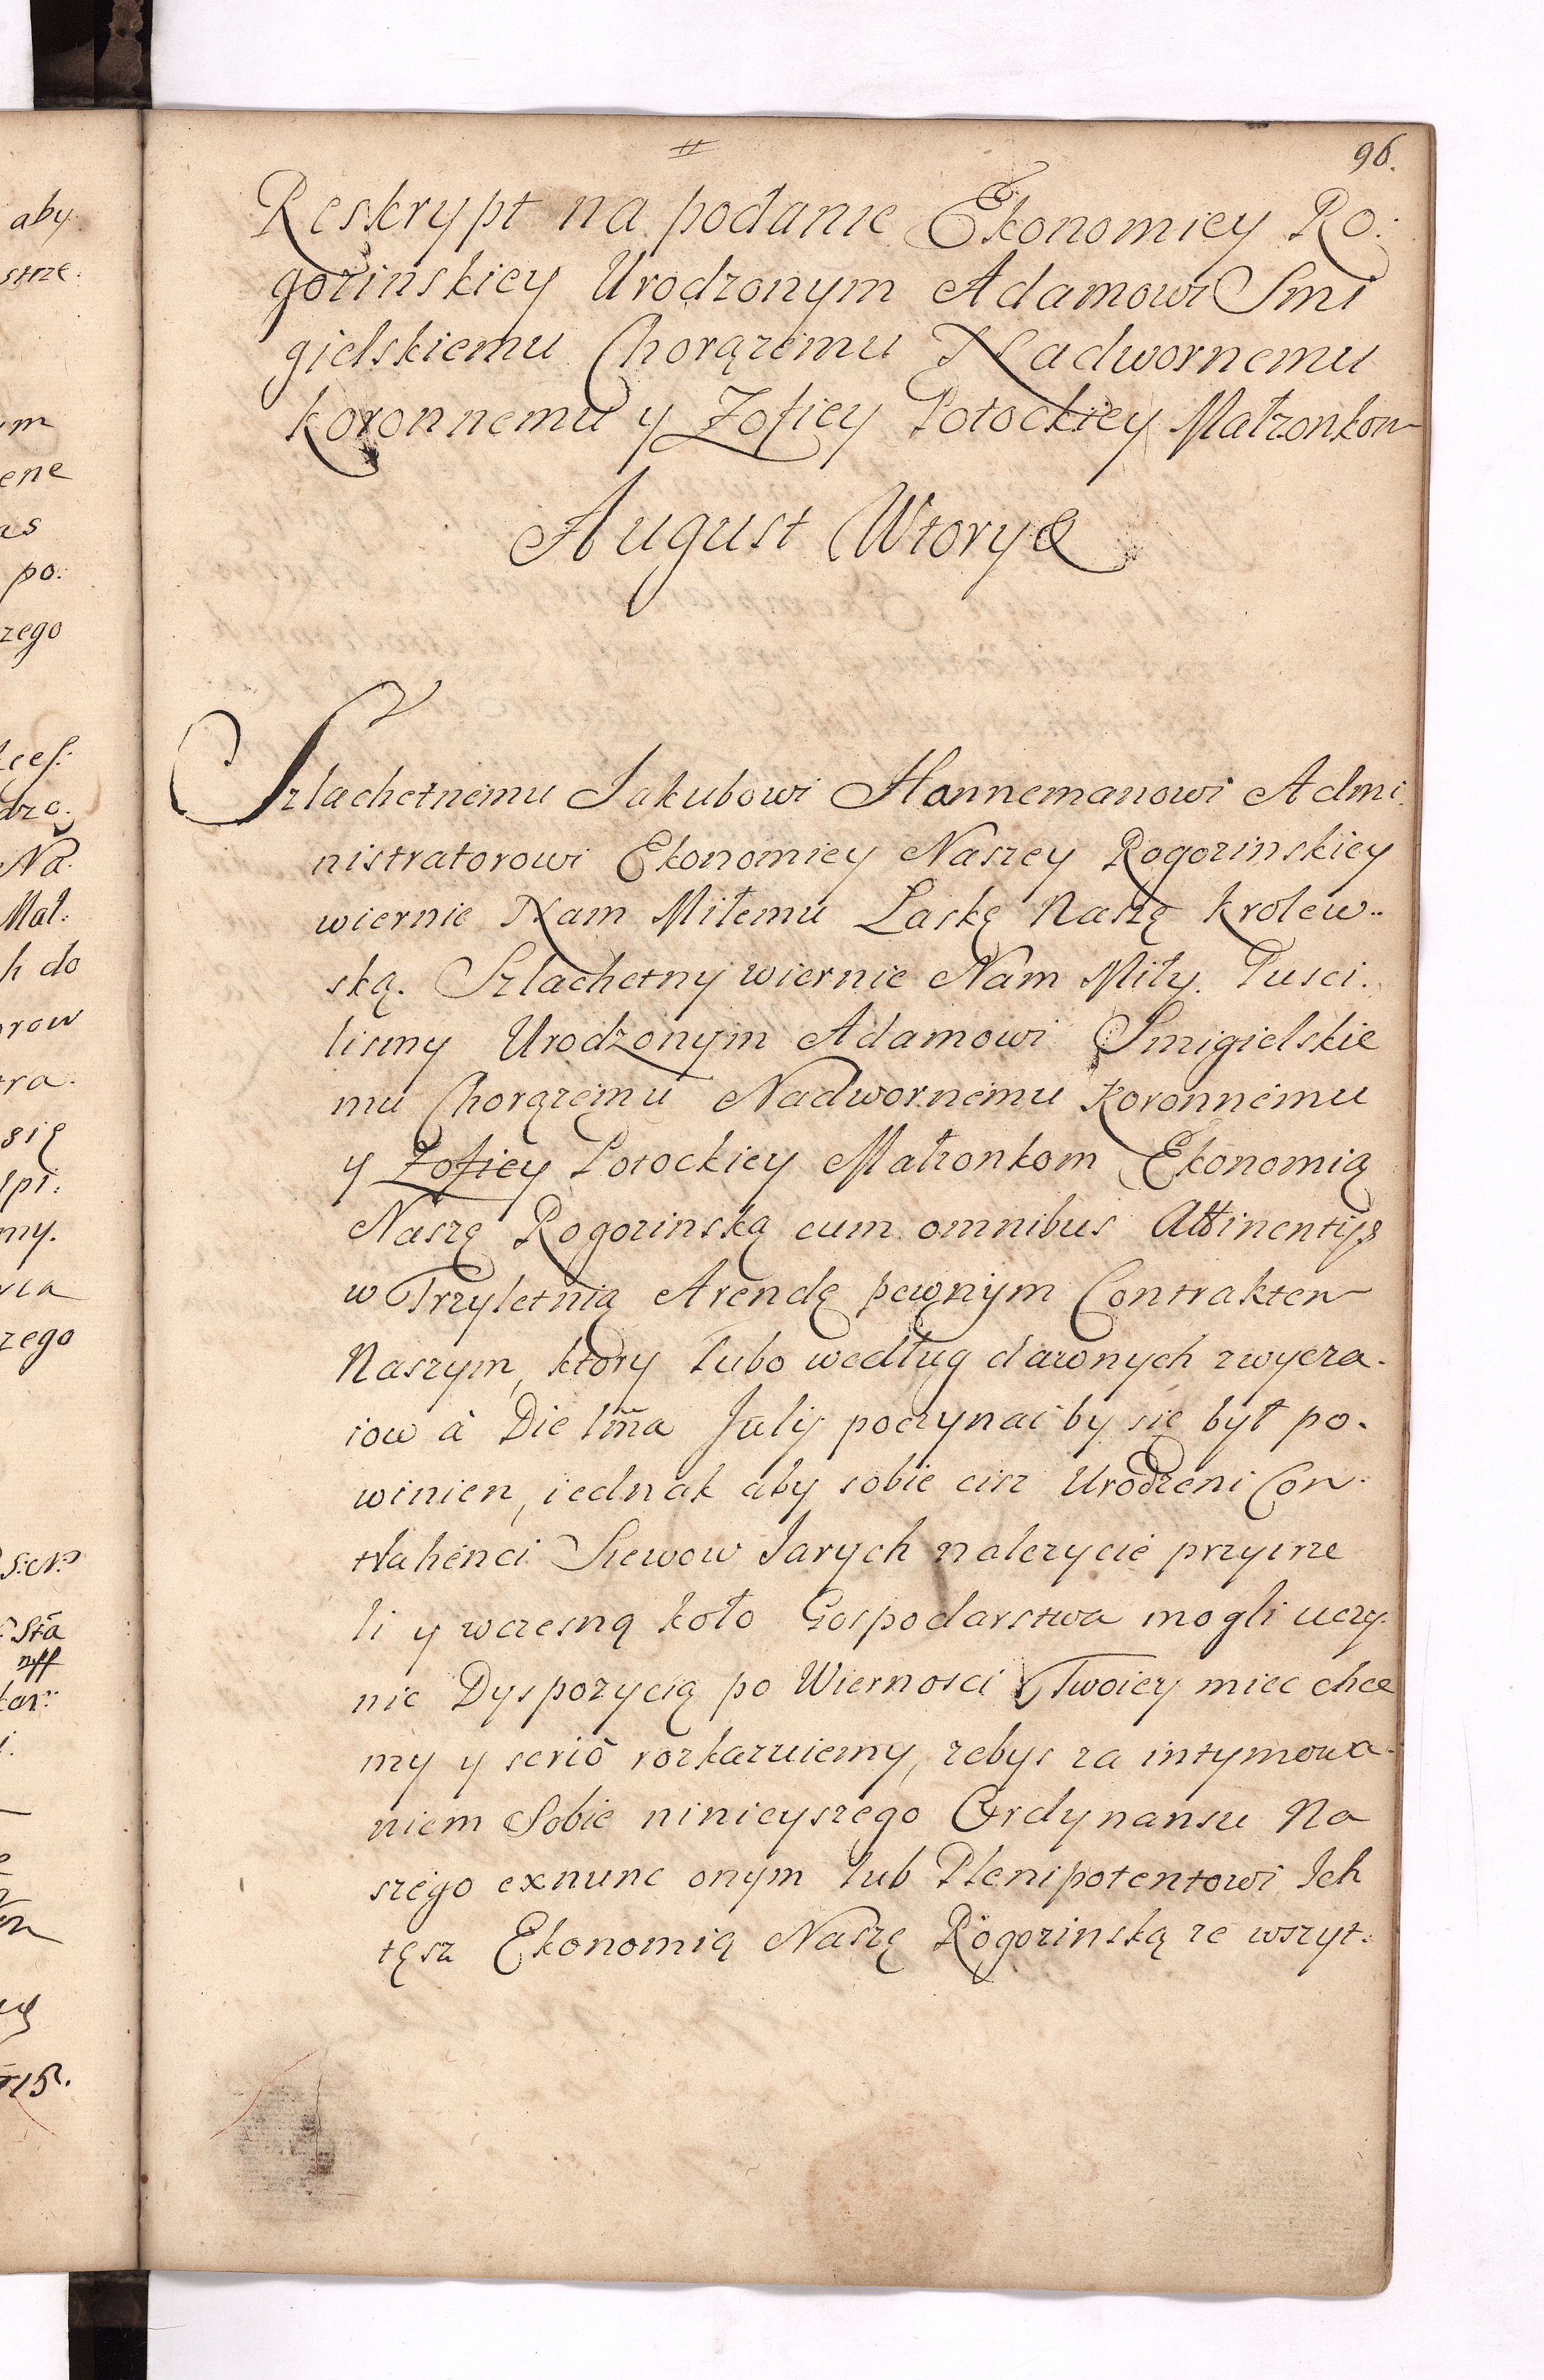 aby.
strze.
ym
ene
as
po:
zego
dzo.
Na.
Mał:
h do
orow
tra.
się
spi:
my.
zego
S:N:
715.
96.
Reskrypt na podanie Ekonomiey Ro:
gozinskiey Urodzonym Adamowi Smi
gielskiemu Chorązemu Nadwornemu
koronnemu y Zofiey Potockiey Małzonkom
August Wtory &
Szlachetnemu Jakubowi Hannemanowi Admi.
nistratorowi Ekonomiey Naszey Rogozinskiey
wiernie Nam Miłemu Laskę Naszę krolew..
ską. Szlachetny wiernie Nam Miły. Pusci.
lismy Urodzonym Adamowi Smigielskie
mu Chorązęmu Nadwornemu Koronnemu
y Zofiey Potockiey Małzonkom Ekonomią
Naszę Rogozinską cum omnibus Attinentijs
w Trzyletnią Arendę pewnym Contraktem
Naszym, ktory lubo według dawnych zwycza.
iow à Die 1ma July poczynać by się był po.
winien, iednak aby sobie cisz Urodzeni Con.
trahenci Siewow Jarych nalezycie przyirze
li y wczesną koło Gospodarstwa mogli uczy.
nic Dyspozycią po Wiernosci Twoiey miec chce
my y seriò rozkazuiemy, zebys za intymowa.
niem Sobie ninieyszego Ordynansu Na
szego exnunc onym lub Plenipotentowi Ich
tęsz Ekonomią Naszę Rogozinską ze wszyt: